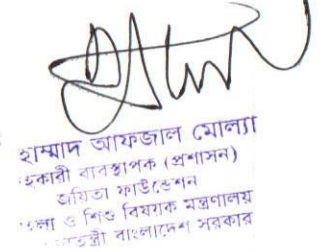 হাম্মাদ আফজাল মোল্যা
হকারী ব্যবস্থাপক (প্রশাসন)
জয়িতা ফাউন্ডেশন
লা ও শিশু বিষয়ক মন্ত্রণালয়
তন্ত্রী বাংলাদেশ সরকার